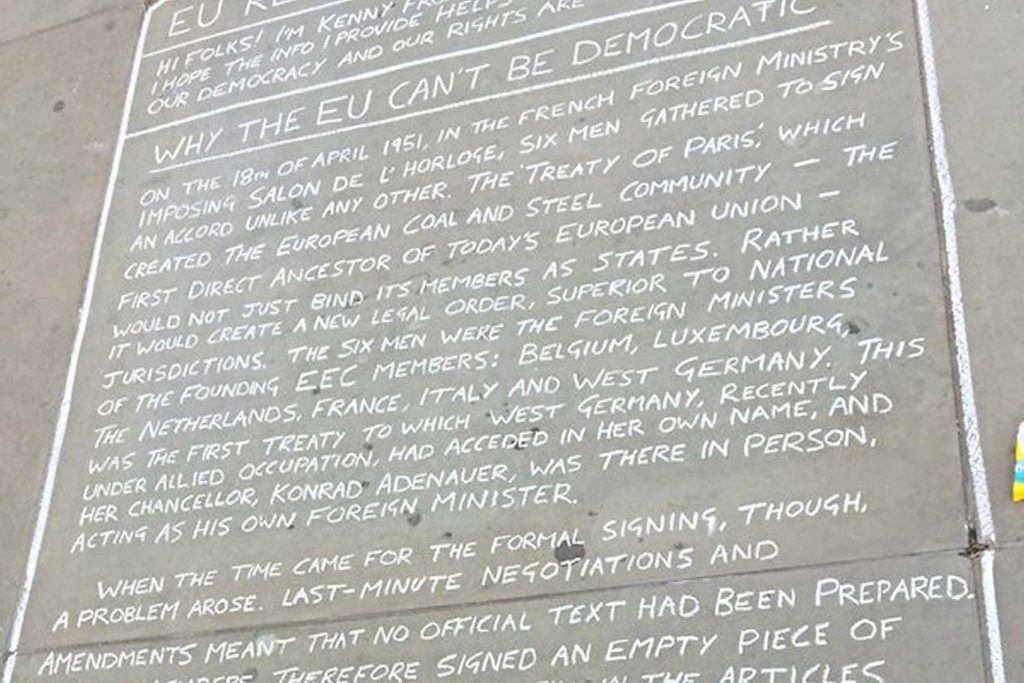 EU RE
HI FOLKS! I'M KENNY FRO
I HOPE THE INFO I PROVIDE HELPS
OUR DEMOCRACY AND OUR RIGHTS ARE
WHY THE EU CAN'T BE DEMOCRATIC
ON THE 18TH OF APRIL 1951, IN THE FRENCH FOREIGN MINISTRY'S
IMPOSING SALON DE L'HORLOGE, SIX MEN GATHERED TO SIGN
AN ACCORD UNLIKE ANY OTHER. THE 'TREATY OF PARIS', WHICH
CREATED THE EUROPEAN COAL AND STEEL COMMUNITY – THE
FIRST DIRECT ANCESTOR OF TODAY'S EUROPEAN UNION –
WOULD NOT JUST BIND ITS MEMBERS AS STATES. RATHER
IT WOULD CREATE A NEW LEGAL ORDER, SUPERIOR TO NATIONAL
JURISDICTIONS. THE SIX MEN WERE THE FOREIGN MINISTERS
OF THE FOUNDING EEC MEMBERS: BELGIUM, LUXEMBOURG,
THE NETHERLANDS, FRANCE, ITALY AND WEST GERMANY. THIS
WAS THE FIRST TREATY TO WHICH WEST GERMANY, RECENTLY
UNDER ALLIED OCCUPATION, HAD ACCEDED IN HER OWN NAME, AND
HER CHANCELLOR, KONRAD ADENAUER, WAS THERE IN PERSON,
ACTING AS HIS OWN FOREIGN MINISTER.
WHEN THE TIME CAME FOR THE FORMAL SIGNING, THOUGH,
A PROBLEM AROSE. LAST-MINUTE NEGOTIATIONS AND
AMENDMENTS MEANT THAT NO OFFICIAL TEXT HAD BEEN PREPARED.
THEREFORE SIGNED AN EMPTY PIECE OF
IN THE ARTICLES